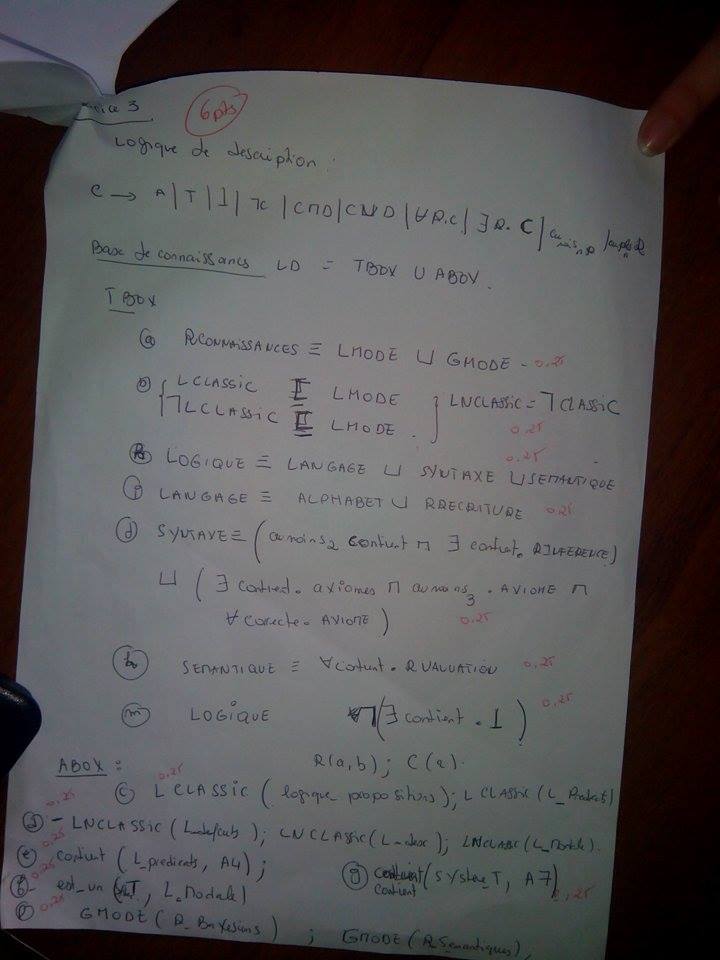 ice 3
6pts
Logique de description :
C → A | T | ⊥ | ¬C | C⊓D | C⊔D | ∀R.C | ∃R.C | au moins n R |
Base de connaissances LD = TBOX ∪ ABOX.
TBOX
(a) RCONNAISSANCES ≡ LMODE ⊔ GMODE - 0.25
LCLASSIC ⊑ LMODE
¬LCLASSIC ⊑ LMODE . LNCLASSIC = ¬CLASSIC
0.25
0.25
LOGIQUE ≡ LANGAGE ⊔ SYNTAXE ⊔ SEMANTIQUE
LANGAGE ≡ ALPHABET ⊔ RRECRITURE 0.25
(d) SYNTAXE ≡ (au moins 2 contient ⊓ ∃ contient. RINFERENCE)
⊔ (∃ contient. axiomes ⊓ au moins 3 . AXIOME ⊓
∀ correcte. AXIOME) 0.25
SEMANTIQUE ≡ ∀ contient. RVALUATION 0.25
(m) LOGIQUE ¬(∃ contient . ⊥) 0.25
ABOX : R(a,b) ; C(a).
0.25
(c) LCLASSIC (logique propositions) ; LCLASSIC (L_Predicats)
0.25
- LNCLASSIC (L_defauts) ; LNCLASSIC (L_desc) ; LNCLASSIC (L_Modale).
0.25
(e) contient (L_predicats, A4) ; (g) contient (Systeme_T, A7)
contient
0.25
est_un (T, L_Modale) 0.25
0.25
GMODE (R_Bayesiens) ; GMODE (R_Semantiques),